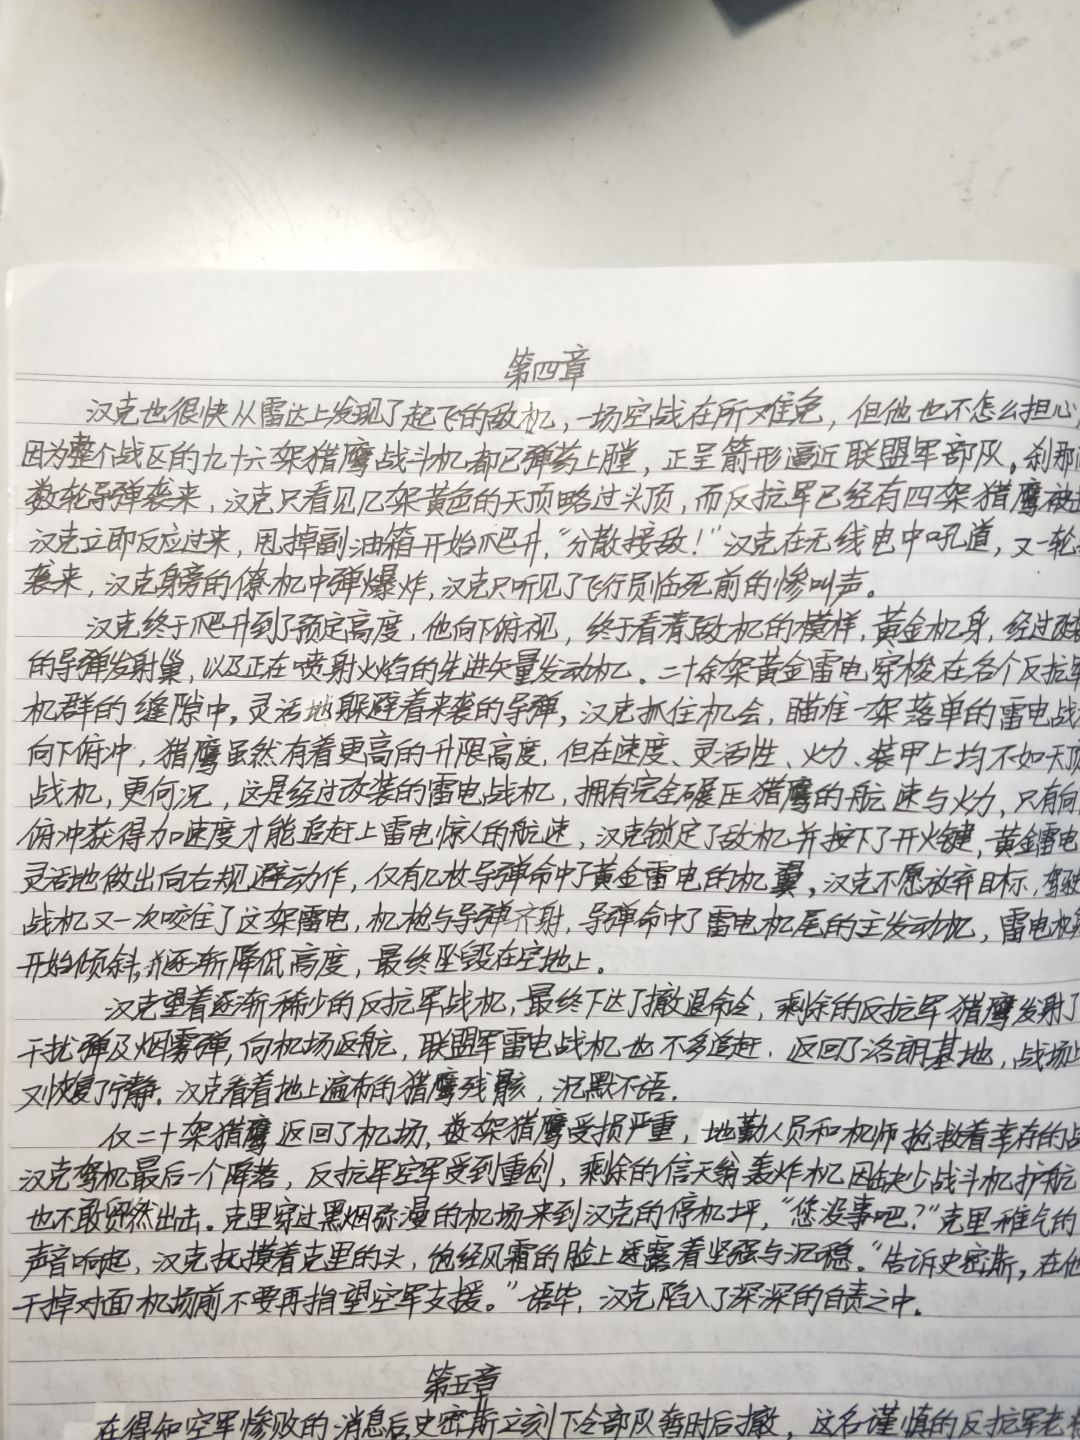 第四章
汉克也很快从雷达上发现了起飞的敌机，一场空战在所难免，但他也不怎么担心，
因为整个战区的九十六架猎鹰战斗机都已弹药上膛，正呈箭形逼近联盟军部队。刹那
数轮导弹袭来，汉克只看见几架黄色的天顶略过头顶，而反抗军已经有四架猎鹰被
汉克立即反应过来，甩掉副油箱开始爬升，“分散接敌！”汉克在无线电中吼道，又一轮
袭来，汉克身旁的僚机中弹爆炸，汉克只听见了飞行员临死前的惨叫声。
汉克终于爬升到了预定高度，他向下俯视，终于看清敌机的模样，黄金机身，经过改装
的导弹发射巢，以及正在喷射火焰的先进矢量发动机。二十余架黄金雷电穿梭在各个反抗军
机群的缝隙中，灵活地躲避着来袭的导弹，汉克抓住机会，瞄准一架落单的雷电战
向下俯冲，猎鹰虽然有着更高的升限高度，但在速度、灵活性、火力、装甲上均不如天顶
战机，更何况，这是经过改装的雷电战机，拥有完全碾压猎鹰的航速与火力，只有向
俯冲获得加速度才能追赶上雷电惊人的航速，汉克锁定了敌机并按下了开火键，黄金雷电
灵活地做出向右规避动作，仅有几枚导弹命中了黄金雷电的机翼，汉克不愿放弃目标，驾驶
战机又一次咬住了这架雷电，机枪与导弹齐射，导弹命中了雷电机尾的主发动机，雷电机
开始倾斜，并逐渐降低高度，最终坠毁在空地上。
汉克望着逐渐稀少的反抗军战机，最终下达了撤退命令，剩余的反抗军猎鹰发射了
干扰弹及烟雾弹，向机场返航，联盟军雷电战机也不多追赶，返回了洛朗基地，战场
又恢复了宁静。汉克看着地上遍布的猎鹰残骸，沉默不语。
仅二十架猎鹰返回了机场，数架猎鹰受损严重，地勤人员和机师抢救着幸存的战
汉克驾机最后一个降落，反抗军空军受到重创，剩余的信天翁轰炸机因缺少战斗机护航
也不敢贸然出击。克里穿过黑烟弥漫的机场来到汉克的停机坪，“您没事吧？”克里稚气的
声音响起，汉克抚摸着克里的头，饱经风霜的脸上透露着坚强与沉稳。“告诉史密斯，在他
干掉对面机场前不要再指望空军支援。”语毕，汉克陷入了深深的自责之中。
第五章
在得知空军惨败的消息后史密斯立刻下令部队暂时后撤，这名谨慎的反抗军老